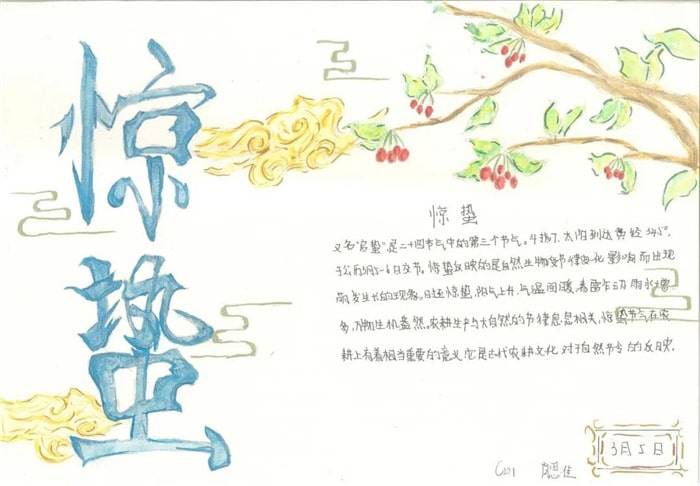 惊蛰
惊蛰
又名“启蛰”是二十四节气中的第三个节气。斗指丁,太阳到达黄经345°,
于公历3月5-6日交节。惊蛰反映的是自然生物受节律变化影响而出现
萌发生长的现象。时至惊蛰,阳气上升、气温回暖、春雷乍动、雨水增
多,万物生机盎然。农耕生产与大自然的节律息息相关,惊蛰节气在农
耕上有着相当重要的意义,它是古代农耕文化对于自然节令的反映.
3月5日